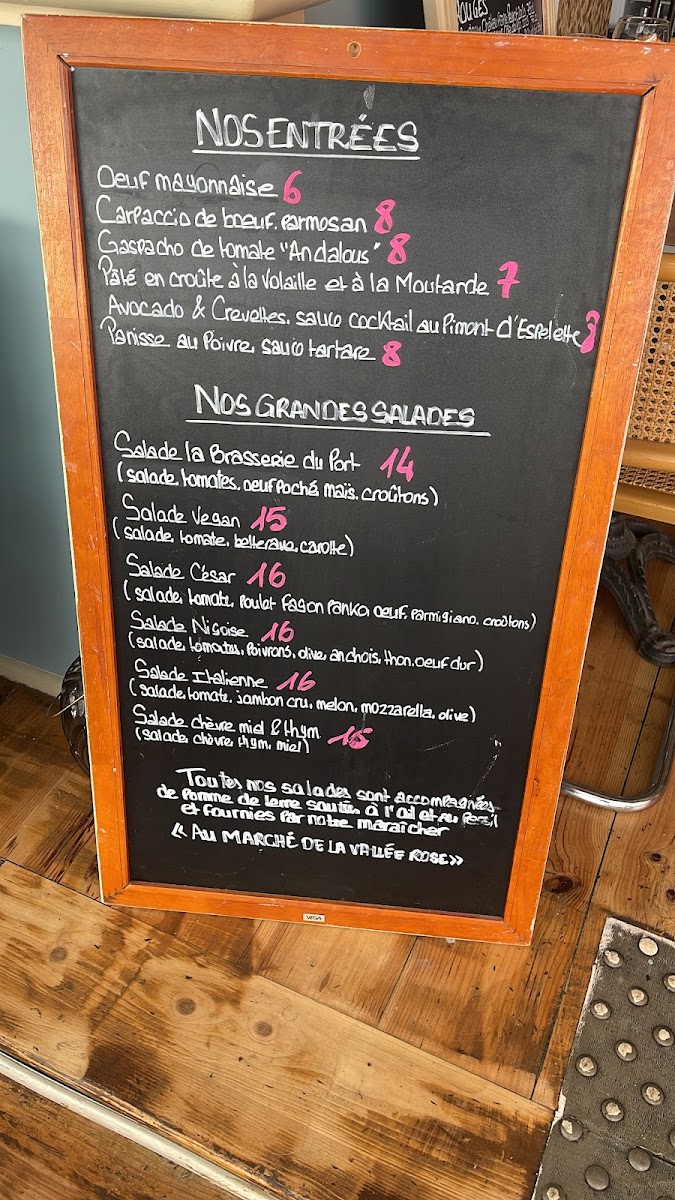 ROUGES
NOS ENTRÉES
Oeuf mayonnaise 6
Carpaccio de boeuf. Parmosan 8
Gaspacho de tomate "Andalous" 8
Pâté en croûte à la Volaille et à la Moutarde 7
Avocado & Crevettes. sauce cocktail au Piment d'Espelette
Panisse au Poivre, sauce tartare 8
NOS GRANDES SALADES
Salade la Brasserie du Port 14
(salade, tomates, oeuf Poché, maïs, croûtons)
Salade Vegan 15
(salade, tomate, betterave, carotte)
Salade César 16
(salade, tomate, Poulet Façon Panko, oeuf, Parmigiano, croûtons)
Salade Niçoise 16
(salade, tomates, Poivrons, olive, anchois, thon, oeuf dur)
Salade Italienne 16
(salade, tomate, jambon cru, melon, mozzarella, olive)
Salade chèvre miel & thym
(salade, chèvre, thym, miel)
Toutes nos salades sont accompagnées
de Pomme de terre sautés à l'ail et au Persil
et fournies Par notre maraîcher
« AU MARCHÉ DE LA VALLÉE ROSE »
VEGA